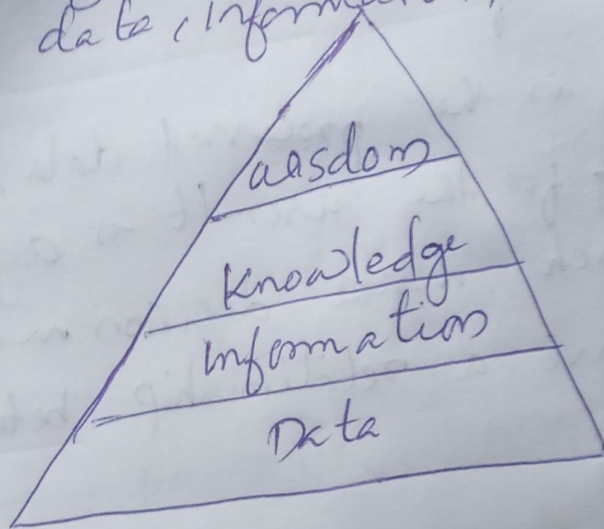 data, Informa
wisdom
Knowledge
Information
Data